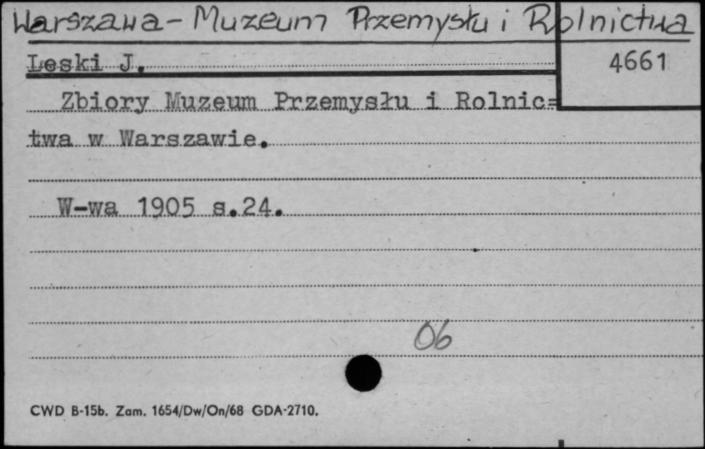 Warszawa - Muzeum Przemysłu i Rolnictwa
Leski J.
4661
Zbiory Muzeum Przemysłu i Rolnic=
twa w Warszawie.
W-wa 1905 s.24.
06
CWD B-15b. Zam. 1654/Dw/On/68 GDA-2710.